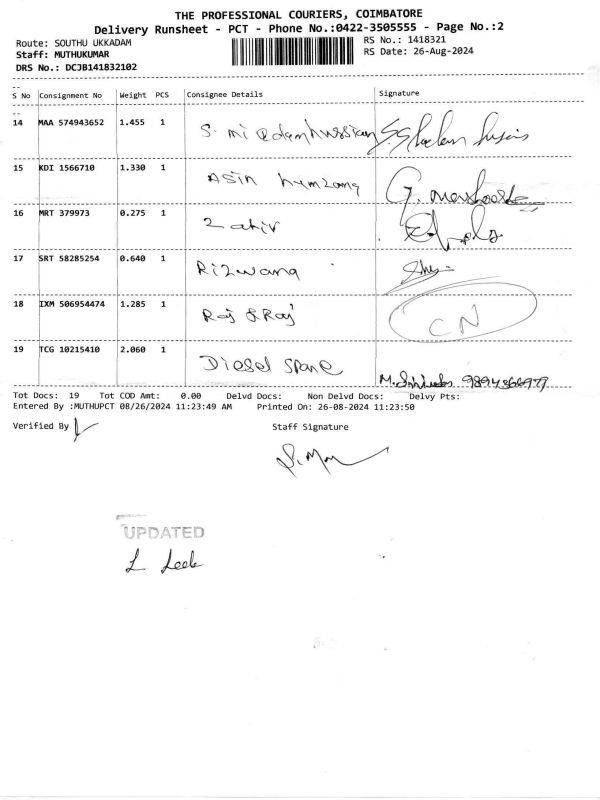 THE PROFESSIONAL COURIERS, COIMBATORE
Delivery Runsheet - PCT - Phone No.:0422-3505555 - Page No.:2
Route: SOUTHU UKKADAM
RS No.: 1418321
Staff: MUTHUKUMAR
RS Date: 26-Aug-2024
DRS No.: DCJB141832102
S No Consignment No Weight PCS Consignee Details Signature
14 MAA 574943652 1.455 1 S. mi
15 KDI 1566710 1.330 1 Asin
16 MRT 379973 0.275 1 Zahir
17 SRT 58285254 0.640 1 Rizwana
18 IXM 506954474 1.285 1 Raj & Raj CN
19 TCG 10215410 2.060 1 Diesel Spare
Tot Docs: 19 Tot COD Amt: 0.00 Delvd Docs: Non Delvd Docs: Delvy Pts:
Entered By :MUTHUPCT 08/26/2024 11:23:49 AM Printed On: 26-08-2024 11:23:50
Verified By
Staff Signature
UPDATED